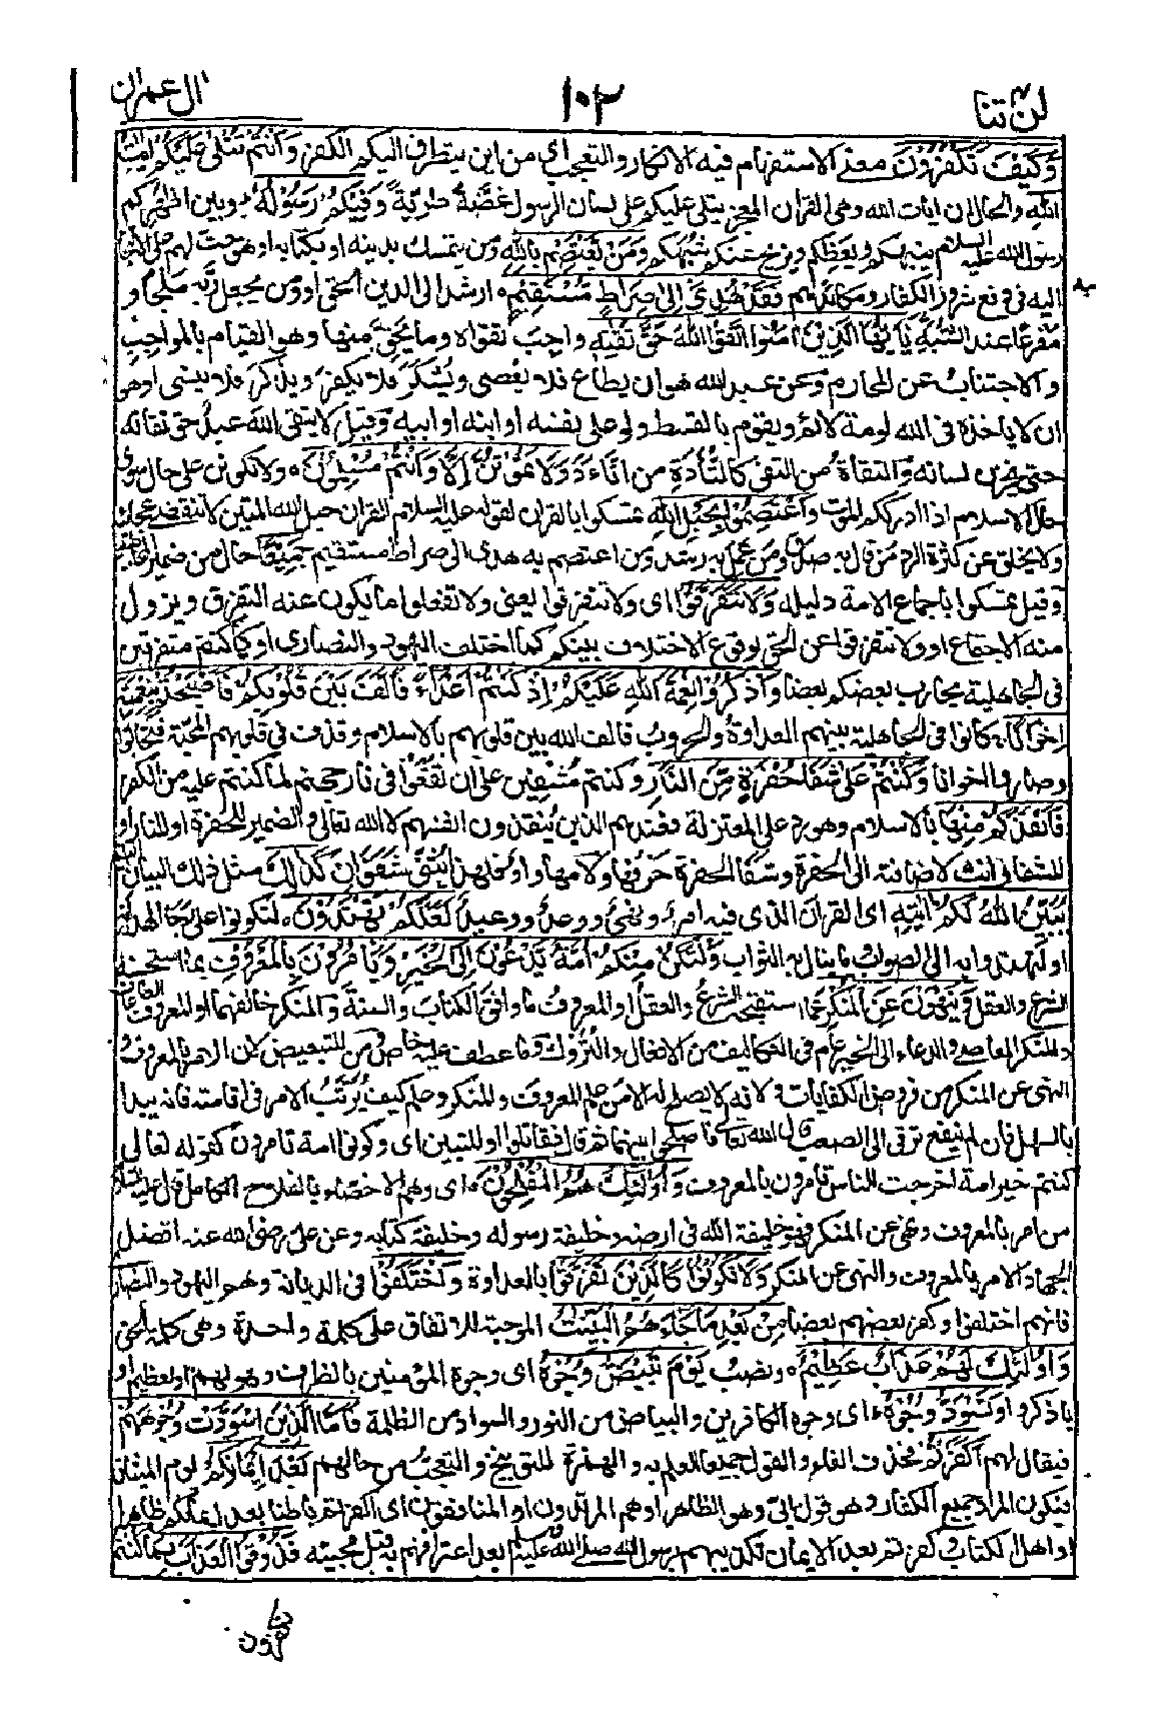 لن تنا
١٠٢
ال عمران
وَكَيْفَ تَكْفُرُوْنَ معنى الاستفهام فيه الانكار والتعجب اى من اين يتطرق اليكم الكفر وَاَنْتُمْ تُتْلٰى عَلَيْكُمْ اٰيٰتُ
اللّٰهِ والحال ان ايات الله وهى القران المعجز يتلى عليكم على لسان الرسول غضة طرية وَفِيْكُمْ رَسُوْلُهٗ وبين اظهركم
رسول الله عليه السلام ينبهكم ويعظكم ويزيح عنكم شبهكم وَمَنْ يَّعْتَصِمْ بِاللّٰهِ ومن يتمسك بدينه او بكتابه او هو حث لهم على الالتجاء
اليه فى دفع شرور الكفار ومكائدهم فَقَدْ هُدِىَ اِلٰى صِرَاطٍ مُّسْتَقِيْمٍ ارشد الى الدين الحق او ومن يجعل ربه ملجأ و
مفزعا عند الشبه يٰاَيُّهَا الَّذِيْنَ اٰمَنُوا اتَّقُوا اللّٰهَ حَقَّ تُقٰتِهٖ واجب تقواه وما يحق منها وهو القيام بالمواجب
والاجتناب عن المحارم وعن عبد الله هو ان يطاع فلا يعصى ويشكر فلا يكفر ويذكر فلا ينسى او هو
ان لا ياخذه فى الله لومة لائم ويقوم بالقسط ولو على نفسه او ابنه او ابيه وقيل لا يتقى الله عبد حق تقاته
حتى يخزن لسانه والتقاة من اتقى كالتؤدة من اتأد وَلَا تَمُوْتُنَّ اِلَّا وَاَنْتُمْ مُّسْلِمُوْنَ ولا تكونن على حال سوى
حال الاسلام اذا ادرككم الموت وَاعْتَصِمُوْا بِحَبْلِ اللّٰهِ تمسكوا بالقران لقوله عليه السلام القران حبل الله المتين لا تنقضى عجائبه
ولا يخلق عن كثرة الرد من قال به صدق ومن عمل به رشد ومن اعتصم به هدى الى صراط مستقيم جَمِيْعًا حال من ضمير
وقيل تمسكوا باجماع الامة دليله وَلَا تَفَرَّقُوْا اى ولا تتفرقوا يعنى ولا تفعلوا ما يكون عنه التفرق ويزول
منه الاجتماع او ولا تتفرقوا عن الحق بوقوع الاختلاف بينكم كما اختلف اليهود والنصارى او كما كنتم متفرقين
فى الجاهلية يحارب بعضكم بعضا وَاذْكُرُوْا نِعْمَةَ اللّٰهِ عَلَيْكُمْ اِذْ كُنْتُمْ اَعْدَاءً فَاَلَّفَ بَيْنَ قُلُوْبِكُمْ فَاَصْبَحْتُمْ بِنِعْمَتِهٖ
اِخْوَانًا كانوا فى الجاهلية بينهم العداوة والحروب فالف الله بين قلوبهم بالاسلام وقذف فى قلوبهم المحبة فتحابوا
وصاروا اخوانا وَكُنْتُمْ عَلٰى شَفَا حُفْرَةٍ مِّنَ النَّارِ وكنتم مشفين على ان تقعوا فى نار جهنم لما كنتم عليه من الكفر
فَاَنْقَذَكُمْ مِّنْهَا بالاسلام وهو رد على المعتزلة فعندهم الذين ينقذون انفسهم لا الله تعالى والضمير للحفرة او للنار او
للشفا وانث لاضافته الى الحفرة وشفا الحفرة حرفها ولامها واو فلهذا يثنى شفوان كَذٰلِكَ مثل ذلك البيان
يُبَيِّنُ اللّٰهُ لَكُمْ اٰيٰتِهٖ اى القران الذى فيه امر ونهى ووعد ووعيد لَعَلَّكُمْ تَهْتَدُوْنَ لتكونوا على رجاء الهداية
او لتهتدوا به الى الصواب وما ينال به الثواب وَلْتَكُنْ مِّنْكُمْ اُمَّةٌ يَّدْعُوْنَ اِلَى الْخَيْرِ وَيَاْمُرُوْنَ بِالْمَعْرُوْفِ بما استحسنه
الشرع والعقل وَيَنْهَوْنَ عَنِ الْمُنْكَرِ عما استقبحه الشرع والعقل او المعروف ما وافق الكتاب والسنة والمنكر خالفهما او المعروف الطاعات
والمنكر المعاصى والدعاء الى الخير عام فى التكاليف من الافعال والتروك وما عطف عليه خاص ومن للتبعيض لان الامر بالمعروف و
النهى عن المنكر من فروض الكفايات ولانه لا يصلح له الا من علم المعروف والمنكر وعلم كيف يرتب الامر فى اقامته فانه يبدأ
بالسهل فان لم ينفع ترقى الى الصعب قال الله تعالى فاصلحوا بينهما ثم قال فقاتلوا او للتبيين اى وكونوا امة تامرون كقوله تعالى
كنتم خير امة اخرجت للناس تامرون بالمعروف وَاُولٰئِكَ هُمُ الْمُفْلِحُوْنَ اى وهم الاخصاء بالفلاح الكامل قال عليه السلام
من امر بالمعروف ونهى عن المنكر فهو خليفة الله فى ارضه وخليفة رسوله وخليفة كتابه وعن على رضى الله عنه افضل
الجهاد الامر بالمعروف والنهى عن المنكر وَلَا تَكُوْنُوْا كَالَّذِيْنَ تَفَرَّقُوْا بالعداوة وَاخْتَلَفُوْا فى الديانة وهو اليهود والنصارى
فانهم اختلفوا وكفر بعضهم بعضا مِنْ بَعْدِ مَا جَاءَهُمُ الْبَيِّنٰتُ الموجبة للاتفاق على كلمة واحدة وهى كلمة الحق
وَاُولٰئِكَ لَهُمْ عَذَابٌ عَظِيْمٌ ونصب يَوْمَ تَبْيَضُّ وُجُوْهٌ اى وجوه المؤمنين بالظرف وهو لهم او بعظيم او
باذكروا وَتَسْوَدُّ وُجُوْهٌ اى وجوه الكافرين والبياض من النور والسواد من الظلمة فَاَمَّا الَّذِيْنَ اسْوَدَّتْ وُجُوْهُهُمْ
فيقال لهم اَكَفَرْتُمْ فحذف الفاء والقول جميعا للعلم به والهمزة للتوبيخ والتعجيب من حالهم بَعْدَ اِيْمَانِكُمْ يوم الميثاق
فيكون المراد جميع الكفار وهو قول ابى وهو الظاهر او هم المرتدون او المنافقون اى اكفرتم باطنا بعد ايمانكم ظاهرا
او اهل الكتاب وكفرهم بعد الايمان تكذيبهم برسول الله صلى الله عليه وسلم بعد اعترافهم به قبل مجيئه فَذُوْقُوا الْعَذَابَ بِمَا كُنْتُمْ